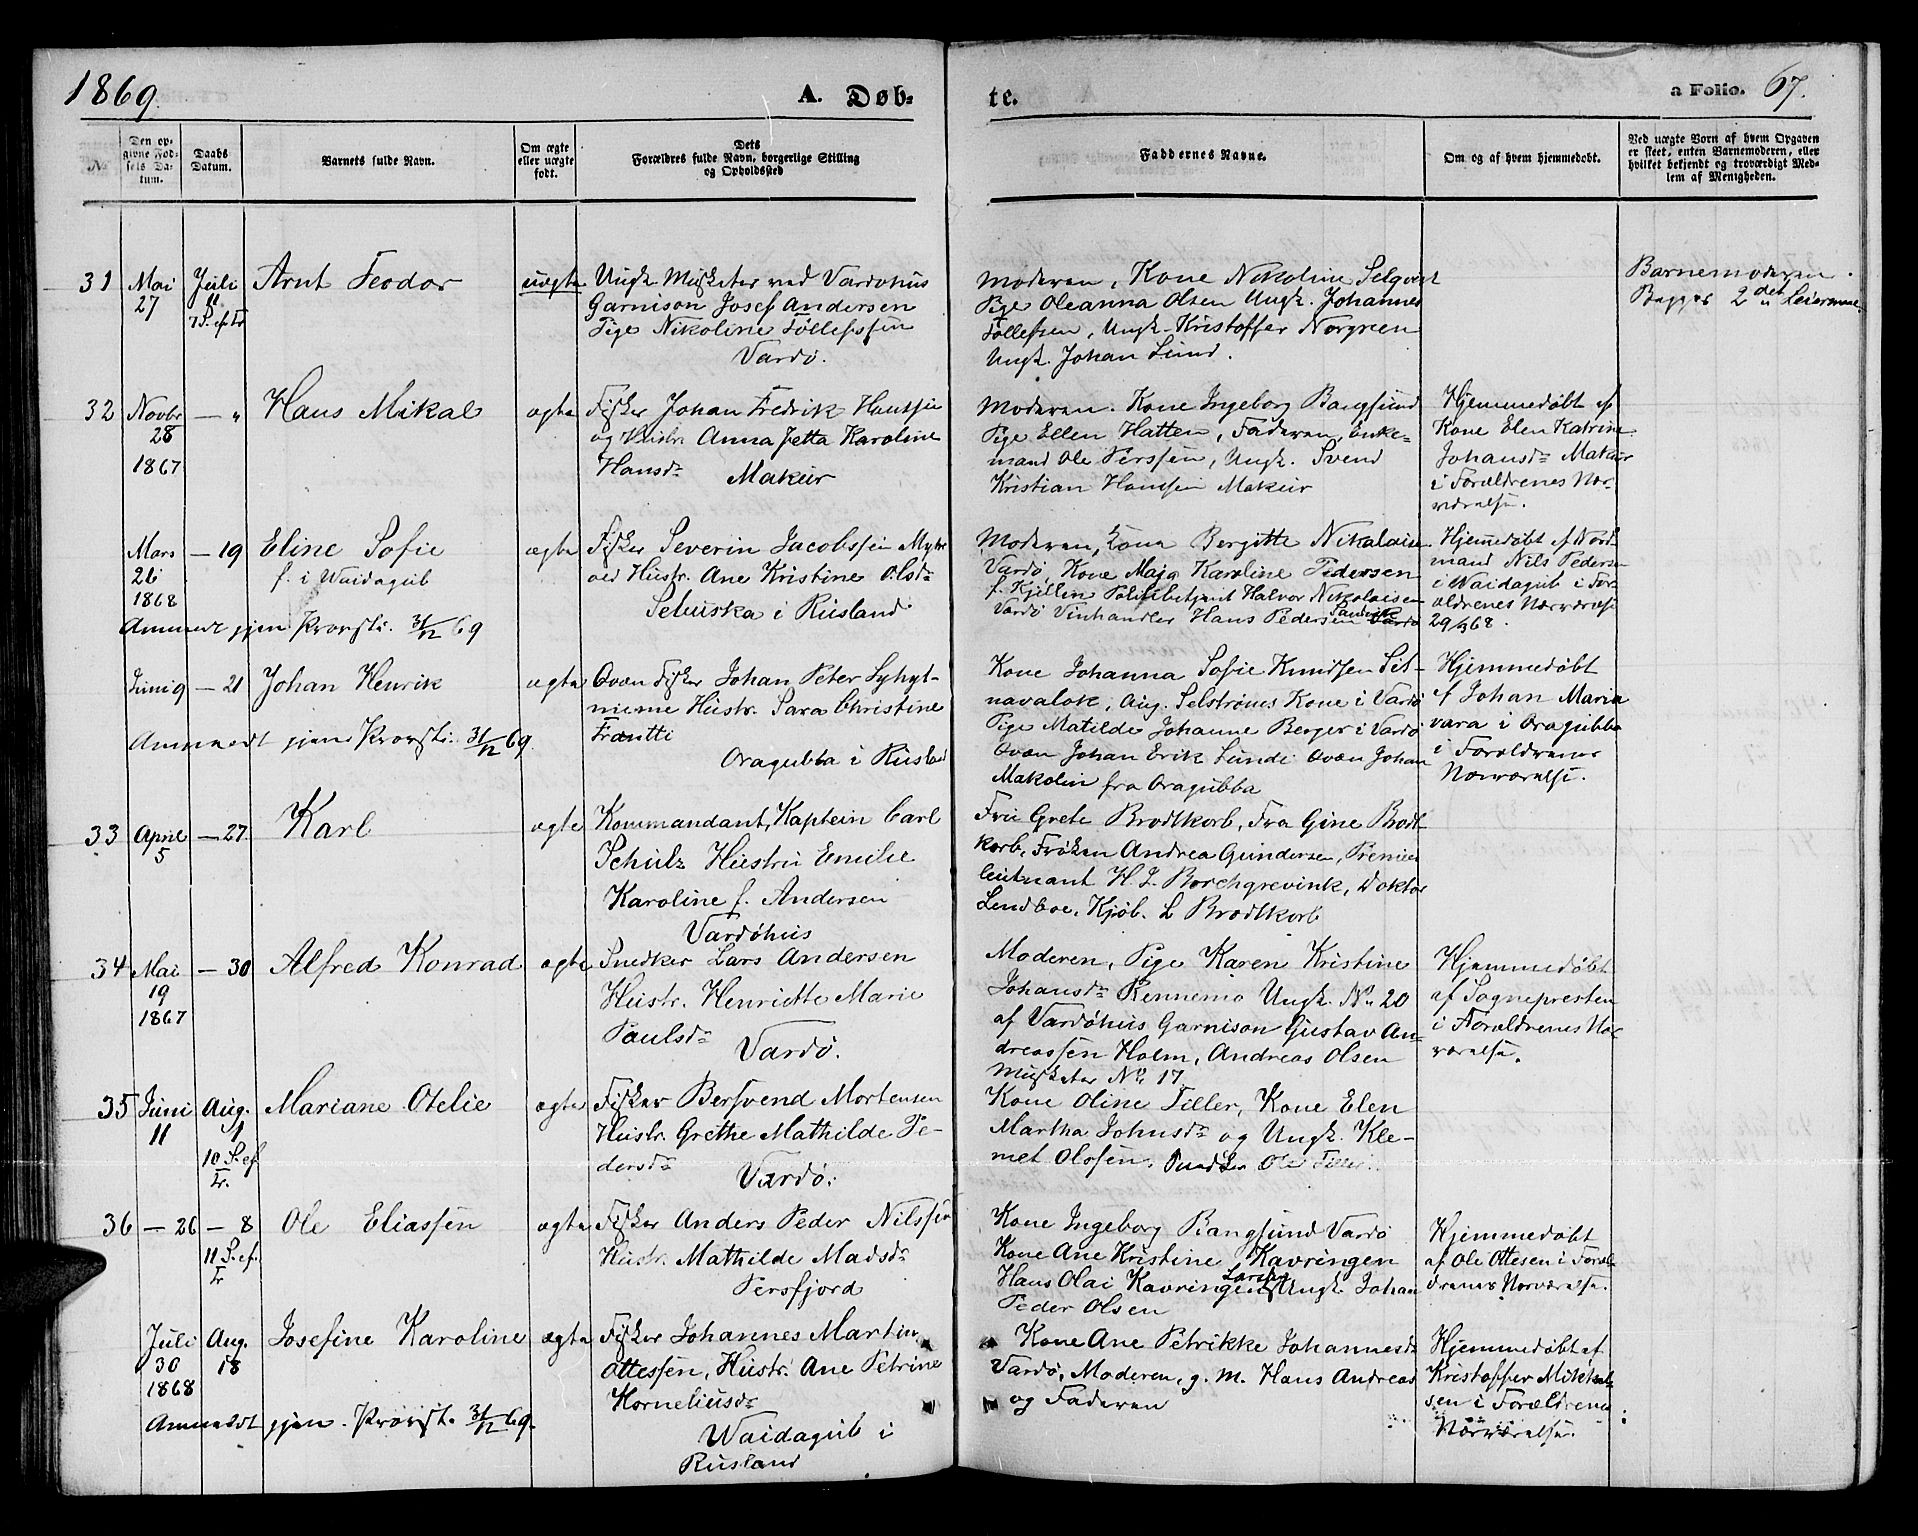 1869.
A. Døb-
te.
a Folio. 67.
No
Den op-
givne Fød-
sels Da-
tum.
Daabs
Datum.
Barnets fulde Navn.
Om ægte
eller uægte
født.
Dets
Forældres fulde Navn, borgerlige Stilling
og Opholdssted
Faddernes Navne.
Om og af hvem hjemmedøbt.
Ved uægte Born af hvem Opgaven
er skeet, enten Barnemoderen, eller
hvilket bekjendt og troværdigt Med-
lem af Menigheden.
31
Mai
27
Juli
11
7 S. ef. Tr
Arnt Feodor
uægte
Ungk. Musketer ved Vardøhus
Garnison Josef Andersen
Pige Nikoline Tøllefssen
Vardø.
Moderen, Kone Nikoline Selqvist
Pige Oleanna Olsen Ungk. Johannes
Tøllefsen, Ungk. Kristoffer Norgreen
Ungk. Johan Lund.
Barnemoderen.
Begges 2det Leiermaal.
32
Novbr
28
1867
— "
Hans Mikal
ægte
Fisker Johan Fredrik Hanssen
og Hustr. Anna Jetta Karoline
Hansdr
Makur
Moderen. Kone Ingeborg Bangsund
Pige Ellen Hatten, Faderen, Enke-
mand Ole Perssen, Ungk. Svend
Kristian Hanssen Makur
Hjemmedøbt af
Kone Elen Katrine
Johansdr Makur
i Forældrenes Nær-
værelse.
Mars
26
1868
— 19
Eline Sofie
f. i Waidagub
ægte
Fisker Severin Jacobssen
Hustr. Ane Kristine Olsdr
i Rusland
Anmeldt gjen. Provsti. 31/12 69
Moderen, Kone Bergitte Nikolaisen
Vardø, Kone Maja Karoline Pedersen
f. Kjellin Politibetjent Halvor Nikolaisen
Vardø Vinhandler Hans Pedersen Sandvik Vardø
Hjemmedøbt af Nord-
mand Nils Pedersen
i Waidagub i For-
ældrenes Nærværelse
29/3 68.
Juni 9
— 21
Johan Henrik
ægte
Qvæn Fisker Johan Peter Lyhyt-
nieme Hustr. Sara Christine
Frantti
Oragubba i Rusland
Anmeldt gjen. Provsti. 31/12 69.
Kone Johanna Sofie Knudsen Sit-
navalok, Aug. Selstrøms Kone i Vardø
Pige Matilde Johanne Berger i Vardø
Qvæn Johan Erik Lunde Qvæn Johan
Makolin fra Oragubba
Hjemmedøbt
af Johan Maria
vara i Oragubba
i Forældrenes
Nærværelse.
33
April
5
— 27
Karl
ægte
Kommandant, Kaptein Carl
Schulz Hustru Emilie
Karoline f. Andersen
Vardøhus
Fru Grete Brodtkorb, Fru Gine Brodt-
korb, Frøken Andrea Gundersen, Premier
leutnant H. L. Borchgrevink, Doktor
Lendboe, Kjøb. L Brodtkorb
34
Mai
19
1867
— 30
Alfred Konrad
ægte
Snedker Lars Andersen
Hustr. Henriette Marie
Paulsdr
Vardø.
Moderen, Pige Karen Kristine
Johansdr Rennemo Ungk. No 20
af Vardøhus Garnison Gustav An-
dreassen Holm, Andreas Olsen
Musketer No. 17
Hjemmedøbt
af Sognepresten
i Forældrenes Nær
værelse.
35
Juni
11
Aug.
1
10 S. ef.
Tr.
Mariane Otelie
ægte
Fisker Bersvend Mortensen
Hustr. Grethe Mathilde Pe-
dersdr
Vardø.
Kone Oline Tiller, Kone Elen
Martha Johnsdr og Ungk. Kle-
met Olssen. Snedker Ole Tiller.
36
— 26
— 8
11 S. ef.
Tr
Ole Eliassen
ægte
Fisker Anders Peder Nilssen
Hustr. Mathilde Madsdr
Persfjord
Kone Ingeborg Bangsund Vardø
Kone Ane Kristine Kavringen
Hans Olai Kavringen Larsen Ungk. Johan
Peder Olsen
Hjemmedøbt
af Ole Ottesen i Foræl-
drenes Nærværelse.
Juli
30
1868
Aug.
18
Josefine Karoline
ægte
Fisker Johannes Martin
Ottessen, Hustr. Ane Petrine
Korneliusdr
Waidagub i
Rusland
Anmeldt gjen. Provsti. 31/12 69.
Kone Ane Petrikke Johannesdr
Vardø, Moderen, g. m. Hans Andreas
og Faderen
Hjemmedøbt af
Kristoffer Mikkel-
sen i Forældrenes
Nærværelse.